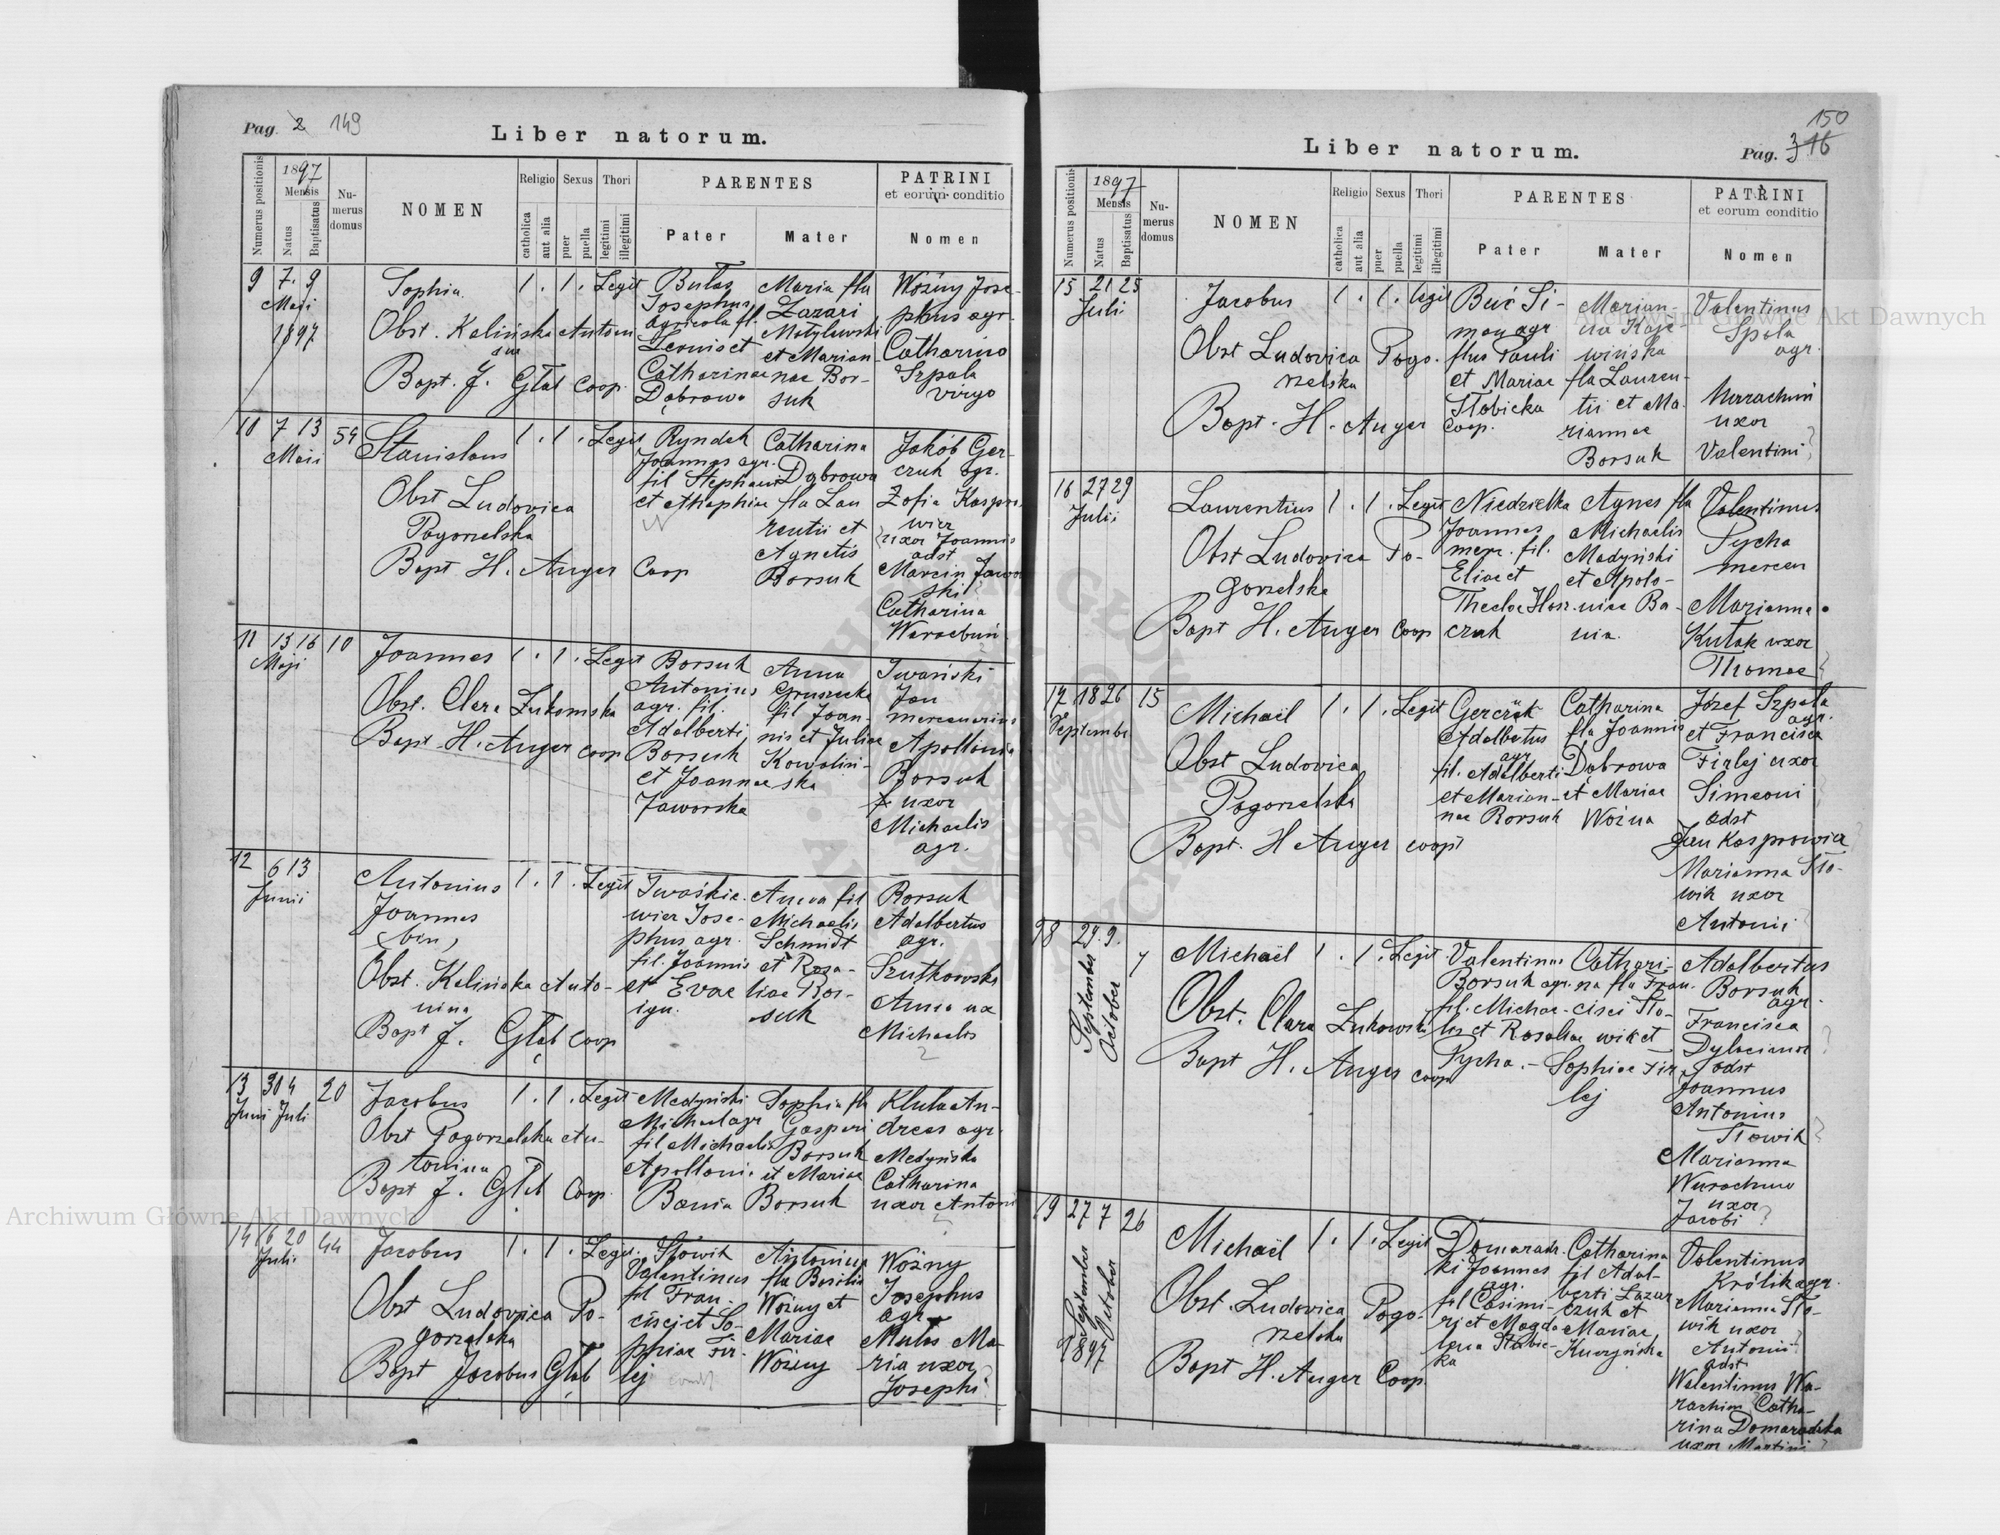 Pag. 2 149
Liber natorum.
Numerus positionis
1897
Mensis
Natus
Baptisatus
Numerus domus
NOMEN
Religio
catholica
aut alia
Sexus
puer
puella
Thori
legitimi
illegitimi
PARENTES
Pater
Mater
PATRINI
et eorum conditio
Nomen
9 7. 9
Maji
1897
Sophia
Obst. Kalińska Anton
Bapt. J. Głąb Coop.
1. 1. Legit
Butas
Josephus
agricola fl.
Leonis et
Catharinae
Dąbrowa
Maria fla
Lazari
Motylewski
et Marian-
nae Bor-
suk
Woźny Jose-
phus agr.
Catharina
Szpala
virgo
10 7 13 54
Maji
Stanislaus
Obst Ludovica
Pogorzelska
Bapt H. Anger Coop
1. 1. Legit
Ryndak
Joannes agr.
fil Stephani
et Agaphiae
Catharina
Dąbrowa
fla Lau
rentii et
Agnetis
Borsuk
Jakób Ger-
czuk agr.
Zofia Kaspro
wicz
uxor Joannis
adst
Marcin Jawor
ski
Catharina
Warachim
11 13 16 10
Maji
Joannes
Obst. Clara Zukomska
Bapt. H. Anger coop
1. 1. Legit
Borsuk
Antonius
agr. fil.
Adalberti
Borsuk
et Joannae
Jaworska
Anna
Gruszecka
fil Joan-
nis et Juliae
Kowalin-
ska
Iwański
Jan
mercenarius
Apollonia
Borsuk
uxor
Michaelis
agr.
12 6 13
Junii
Antonius
Joannes
(bin)
Obst. Kalińska Anto-
nina
Bapt J. Głąb coop
1. 1. Legit
Iwaśkie-
wicz Jose-
phus agr.
fil. Joannis
et Evae
Anna fil
Michaelis
Schmidt
et Rosa-
liae Bor-
suk
Borsuk
Adalbertus
agr.
Szutkowska
Anna ux
Michaelis
13 30 4 20
Juni Juli
Jacobus
Obst Pogorzelska An-
tonina
Bapt J. Głąb Coop.
1. 1. Legit
Medyński
Michael agr
fil Michaelis
Apollonia
Bania
Sophia fla
Gaspari
Borsuk
et Mariae
Borsuk
Kluba An-
dreas agr.
Medyńska
Catharina
uxor Antoni
14 16 20 44
Julii
Jacobus
Obst Ludovica Po-
gorzelska
Bapt Jacobus Głąb
1. 1. Legit.
Słowik
Valentinus
fil Fran-
cisci et So-
phiae Fir-
lej
Antonina
fla Basilii
Woźny et
Mariae
Woźny
Woźny
Josephus
agr
Mulas Ma-
ria uxor
Josephi
150
Pag. 3 16
Liber natorum.
Numerus positionis
1897
Mensis
Natus
Baptisatus
Numerus domus
NOMEN
Religio
catholica
aut alia
Sexus
puer
puella
Thori
legitimi
illegitimi
PARENTES
Pater
Mater
PATRINI
et eorum conditio
Nomen
15 21 25
Juli
Jacobus
Obst Ludovica Pogo-
rzelska
Bapt. H. Anger Coop.
1. 1. legit
Buć Si-
mon agr
flus Pauli
et Mariae
Słobicka
Marian-
na Kaje-
wińska
fla Lauren-
tii et Ma-
riannae
Borsuk
Valentinus
Szpala
agr.
Marachim
uxor
Valentini
16 27 29
Julii
Laurentius
Obst Ludovica Po-
gorzelska
Bapt H. Anger Coop
1. 1. Legit
Niedzielka
Joannes
merc. fil.
Eliae et
Theclae Hor-
czuk
Agnes fla
Michaelis
Medyński
et Apolo-
niae Ba-
nia.
Valentinus
Pycha
mercen
Marianna
Kutak uxor
Thomae
17 18 26 15
Septembr
Michaël
Obst Ludovica
Pogorzelska
Bapt. H Anger coop
1. 1. Legit
Gerczak
Adalbertus
agr
fil. Adalberti
et Marian-
nae Borsuk
Catharina
fla Joannis
Dąbrowa
et Mariae
Woźna
Józef Szpala
agr.
et Francisca
Firlej uxor
Simeoni
adst
Jan Kasprowicz
Marianna Sło-
wik uxor
Antonii
18 29. 9. 7
September October
Michaël
Obst. Clara Zukowski
Bapt H. Anger coop
1. 1. Legit.
Valentinus
Borsuk agr.
fil. Michae-
lis et Rosaliae
Pycha.
Cathari-
na fla Fran-
cisci Sło-
wik et
Sophiae Fir-
lej
Adalbertus
Borsuk
agr.
Francisca
adst
Joannus
Antonius
Słowik
Marianna
Warachim
uxor
Jacobi
19 27 7 26
September October
1897
Michaël
Obst. Ludovica Pogo-
rzelska
Bapt H. Anger Coop.
1. 1. Legit
Domaradz-
ki Joannes
agr.
fil Casimi-
ri et Magda
lena Słobic-
ka
Catharina
fil Adal-
berti Lazar
czuk et
Mariae
Kuczyńska
Valentinus
Królik agr.
Marianna Sło-
wik uxor
Antonii
adst
Walentinus Wa-
rachim Catha-
rina Domaradzka
uxor Martini
Archiwum Główne Akt Dawnych
Archiwum Główne Akt Dawnych